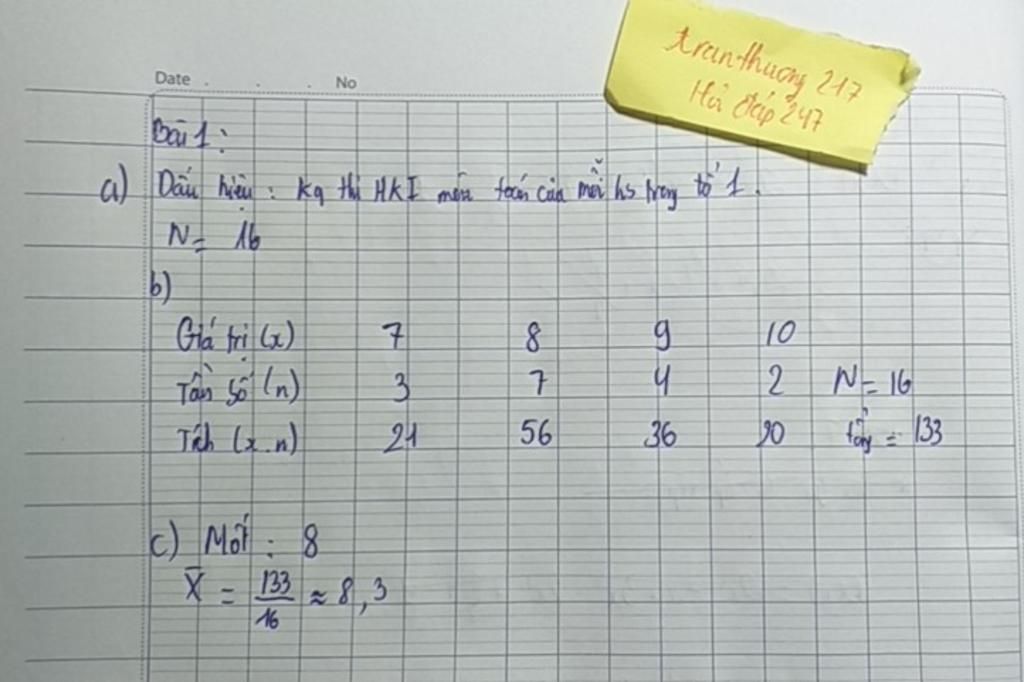 tranthuong 217
Hỏi đáp 247
Date . . . No
Bài 1:
a) Dấu hiệu : Kq thi HKI môn toán của mỗi hs trong tổ 1.
N = 16
b)
Giá trị (x) 7 8 9 10
Tần số (n) 3 7 4 2 N = 16
Tích (x.n) 21 56 36 20 tổng = 133
c) Mốt : 8
X̄ = 133/16 ≈ 8,3